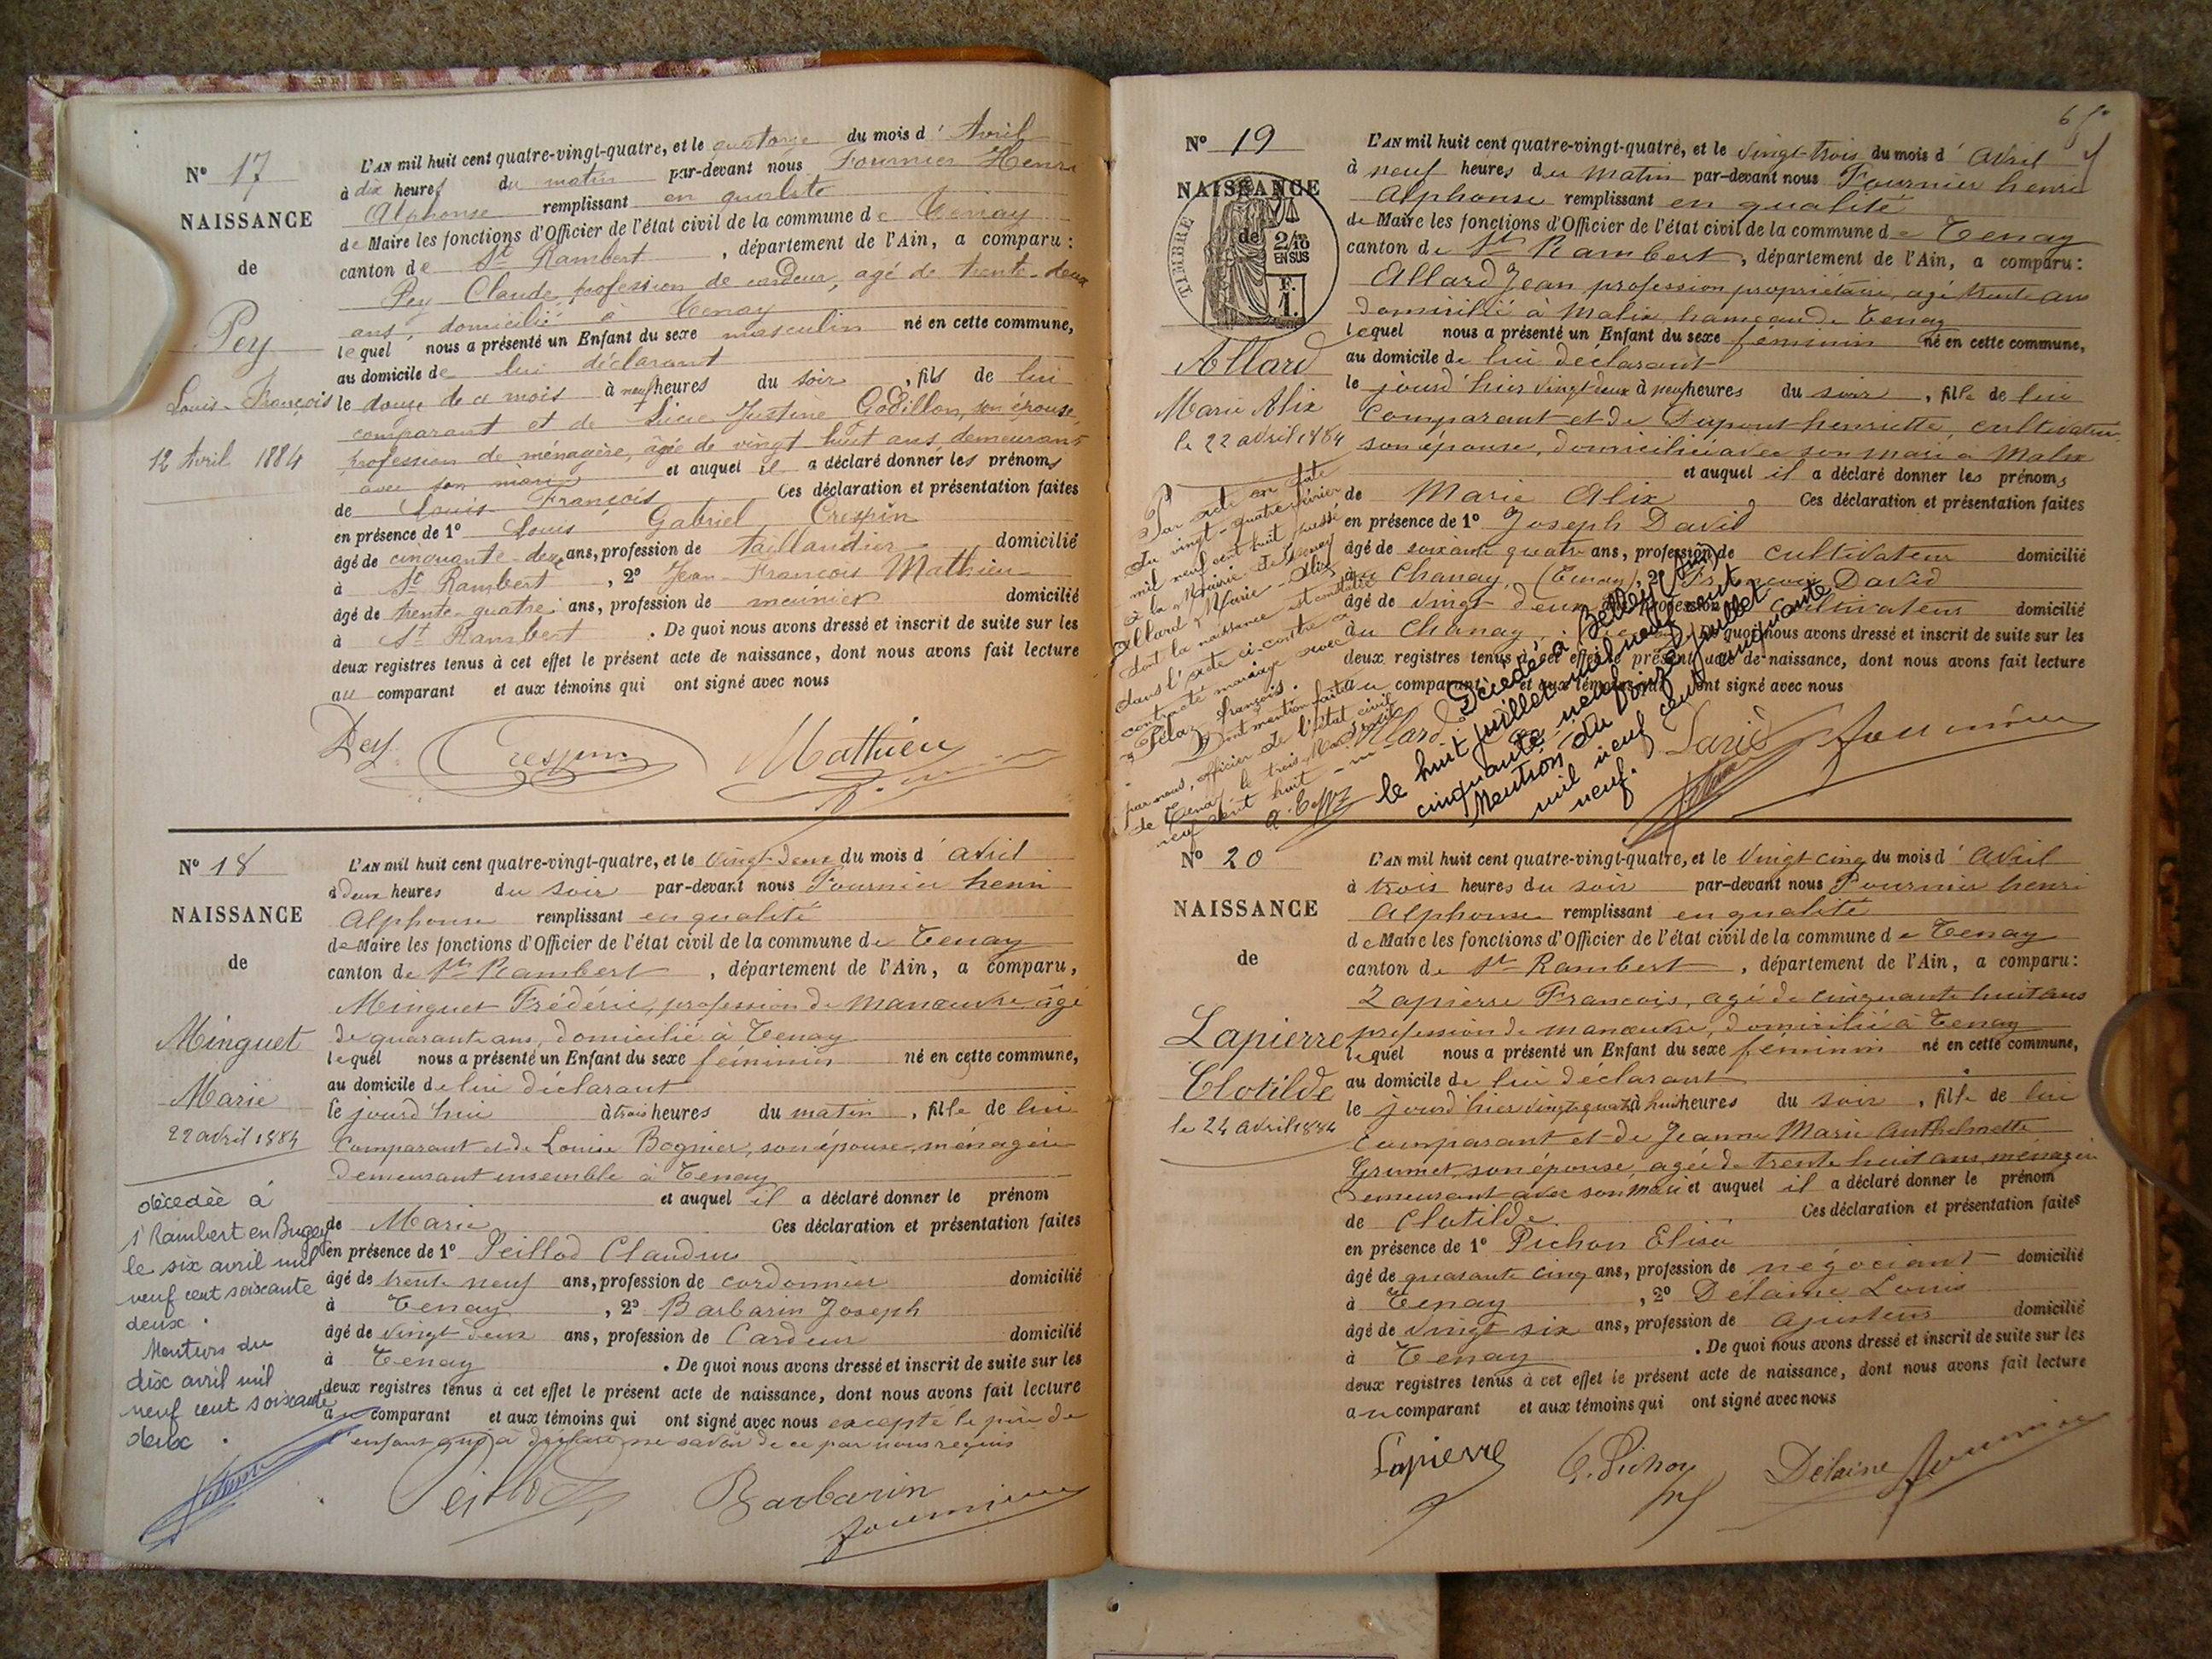 N° 17
NAISSANCE
de
Pey
Louis-François
12 Avril 1884
L'AN mil huit cent quatre-vingt-quatre, et le quatorze du mois d' Avril
à dix heures du matin par-devant nous Fournier Henri
Alphonse remplissant en qualité
de Maire les fonctions d'Officier de l'état civil de la commune de Tenay
canton de St Rambert, département de l'Ain, a comparu:
Pey Claude, profession de cardeur, agé de trente-deux
ans, domicilié à Tenay
lequel nous a présenté un Enfant du sexe masculin né en cette commune,
au domicile de lui déclarant
le douze de ce mois à neuf heures du soir, fils de lui
comparant et de Lucie Justine Godillon, son épouse,
profession de ménagère, âgée de vingt huit ans demeurant
avec son mari et auquel il a déclaré donner les prénoms
de Louis François Ces déclaration et présentation faites
en présence de 1° Louis Gabriel Crespin
âgé de cinquante-deux ans, profession de taillandier domicilié
à St Rambert, 2° Jean-François Mathieu
âgé de trente-quatre ans, profession de meunier domicilié
à St Rambert. De quoi nous avons dressé et inscrit de suite sur les
deux registres tenus à cet effet le présent acte de naissance, dont nous avons fait lecture
au comparant et aux témoins qui ont signé avec nous
Pey Crespin Mathieu
N° 18
NAISSANCE
de
Minguet
Marie
22 avril 1884
décédée à
St Rambert en Bugey
le six avril mil
neuf cent soixante
deux.
Mention du
dix avril mil
neuf cent soixante
deux.
L'AN mil huit cent quatre-vingt-quatre, et le vingt-deux du mois d' avril
à deux heures du soir par-devant nous Fournier henri
Alphonse remplissant en qualité
de Maire les fonctions d'Officier de l'état civil de la commune de Tenay
canton de St Rambert, département de l'Ain, a comparu,
Minguet Frédéric, profession de manœuvre âgé
de quarante ans, domicilié à Tenay
lequel nous a présenté un Enfant du sexe féminin né en cette commune,
au domicile de lui déclarant
le jourd'hui à trois heures du matin, fille de lui
Comparant et de Louise Bognier, son épouse, ménagère
demeurant ensemble à Tenay
et auquel il a déclaré donner le prénom
de Marie Ces déclaration et présentation faites
en présence de 1° Peillod
âgé de trente neuf ans, profession de cordonnier domicilié
à Tenay, 2° Barbarin Joseph
âgé de vingt deux ans, profession de Cardeur domicilié
à Tenay. De quoi nous avons dressé et inscrit de suite sur les
deux registres tenus à cet effet le présent acte de naissance, dont nous avons fait lecture
au comparant et aux témoins qui ont signé avec nous excepté le père de
l'enfant qui a déclaré ne savoir de ce par nous requis
Peillod Barbarin
Fournier
N° 19
NAISSANCE
de
TIMBRE
2/10
EN SUS
F.
1.
Allard
Marie Alix
le 22 avril 1884
Par acte en date
du vingt-quatre février
mil neuf cent huit passé
à la Mairie de Tenay
Allard Marie-Alix
dont la naissance est constatée
dans l'acte ci-contre a
contracté mariage avec
Pélaz François.
Dont mention faite
par nous, officier de l'état civil
de Tenay le trois Mars mil
neuf cent huit
L'AN mil huit cent quatre-vingt-quatre, et le vingt-trois du mois d' avril
à neuf heures du matin par-devant nous Fournier henri
Alphonse remplissant en qualité
de Maire les fonctions d'Officier de l'état civil de la commune de Tenay
canton de St Rambert, département de l'Ain, a comparu:
Allard Jean profession propriétaire, agé trente ans
domicilié à Malix hameau de Tenay
lequel nous a présenté un Enfant du sexe féminin né en cette commune,
au domicile de lui déclarant
le jourd'hier vingt deux à neuf heures du soir, fille de lui
Comparant et de Dupont henriette, cultivatrice
son épouse, domiciliée avec son mari à Malix
et auquel il a déclaré donner les prénoms
de Marie Alix Ces déclaration et présentation faites
en présence de 1° Joseph David
âgé de soixante quatre ans, profession de cultivateur domicilié
au Chanay, (Tenay), 2° François David
âgé de vingt deux ans, profession de cultivateur domicilié
au Chanay. De quoi nous avons dressé et inscrit de suite sur les
deux registres tenus à cet effet le présent acte de naissance, dont nous avons fait lecture
au comparant et aux témoins qui ont signé avec nous
Allard David Fournier
Décédée à Belley (Ain)
le huit juillet mil neuf cent
cinquante neuf
Mention du onze juillet
mil neuf cent cinquante
neuf.
N° 20
NAISSANCE
de
Lapierre
Clotilde
le 24 avril 1884
L'AN mil huit cent quatre-vingt-quatre, et le vingt cinq du mois d' avril
à trois heures du soir par-devant nous Fournier henri
Alphonse remplissant en qualité
de Maire les fonctions d'Officier de l'état civil de la commune de Tenay
canton de St Rambert, département de l'Ain, a comparu:
Lapierre François, agé de cinquante huit ans
profession de manœuvre, domicilié à Tenay
lequel nous a présenté un Enfant du sexe féminin né en cette commune,
au domicile de lui déclarant
le jourd'hier vingt quatre à huit heures du soir, fille de lui
Comparant et de Jeanne Marie Anthelmette
Grumet, son épouse, agée de trente huit ans, ménagère
demeurant avec son mari et auquel il a déclaré donner le prénom
de Clotilde Ces déclaration et présentation faites
en présence de 1° Pichon Elisée
âgé de quarante cinq ans, profession de négociant domicilié
à Tenay, 2° Délaine Louis
âgé de vingt six ans, profession de ajusteur domicilié
à Tenay. De quoi nous avons dressé et inscrit de suite sur les
deux registres tenus à cet effet le présent acte de naissance, dont nous avons fait lecture
au comparant et aux témoins qui ont signé avec nous
Lapierre E. Pichon Délaine Fournier